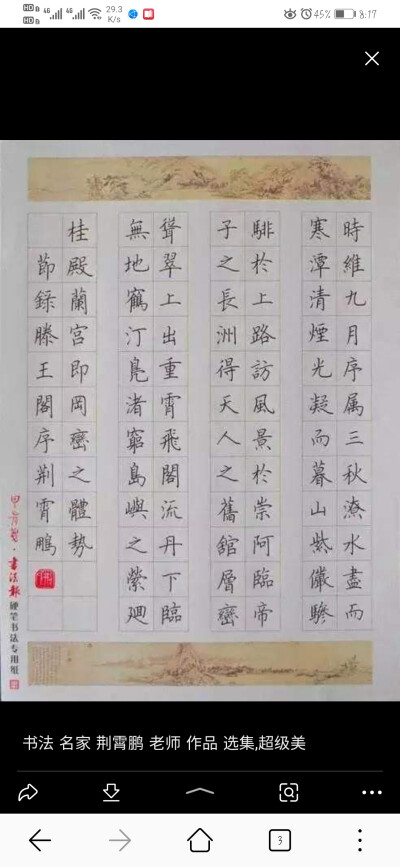 HD 4G 4G 29.3 K/s 45% 8:17
時維九月序属三秋潦水盡而
寒潭清煙光凝而暮山紫儼驂
騑於上路訪風景於崇阿臨帝
子之長洲得天人之舊舘層巒
聳翠上出重霄飛閣流丹下臨
無地鶴汀鳧渚窮島嶼之縈廻
桂殿蘭宫即岡巒之體勢
節録滕王閣序荆霄鵬
書法報
硬笔书法专用纸
书法 名家 荆霄鹏 老师 作品 选集,超级美
3